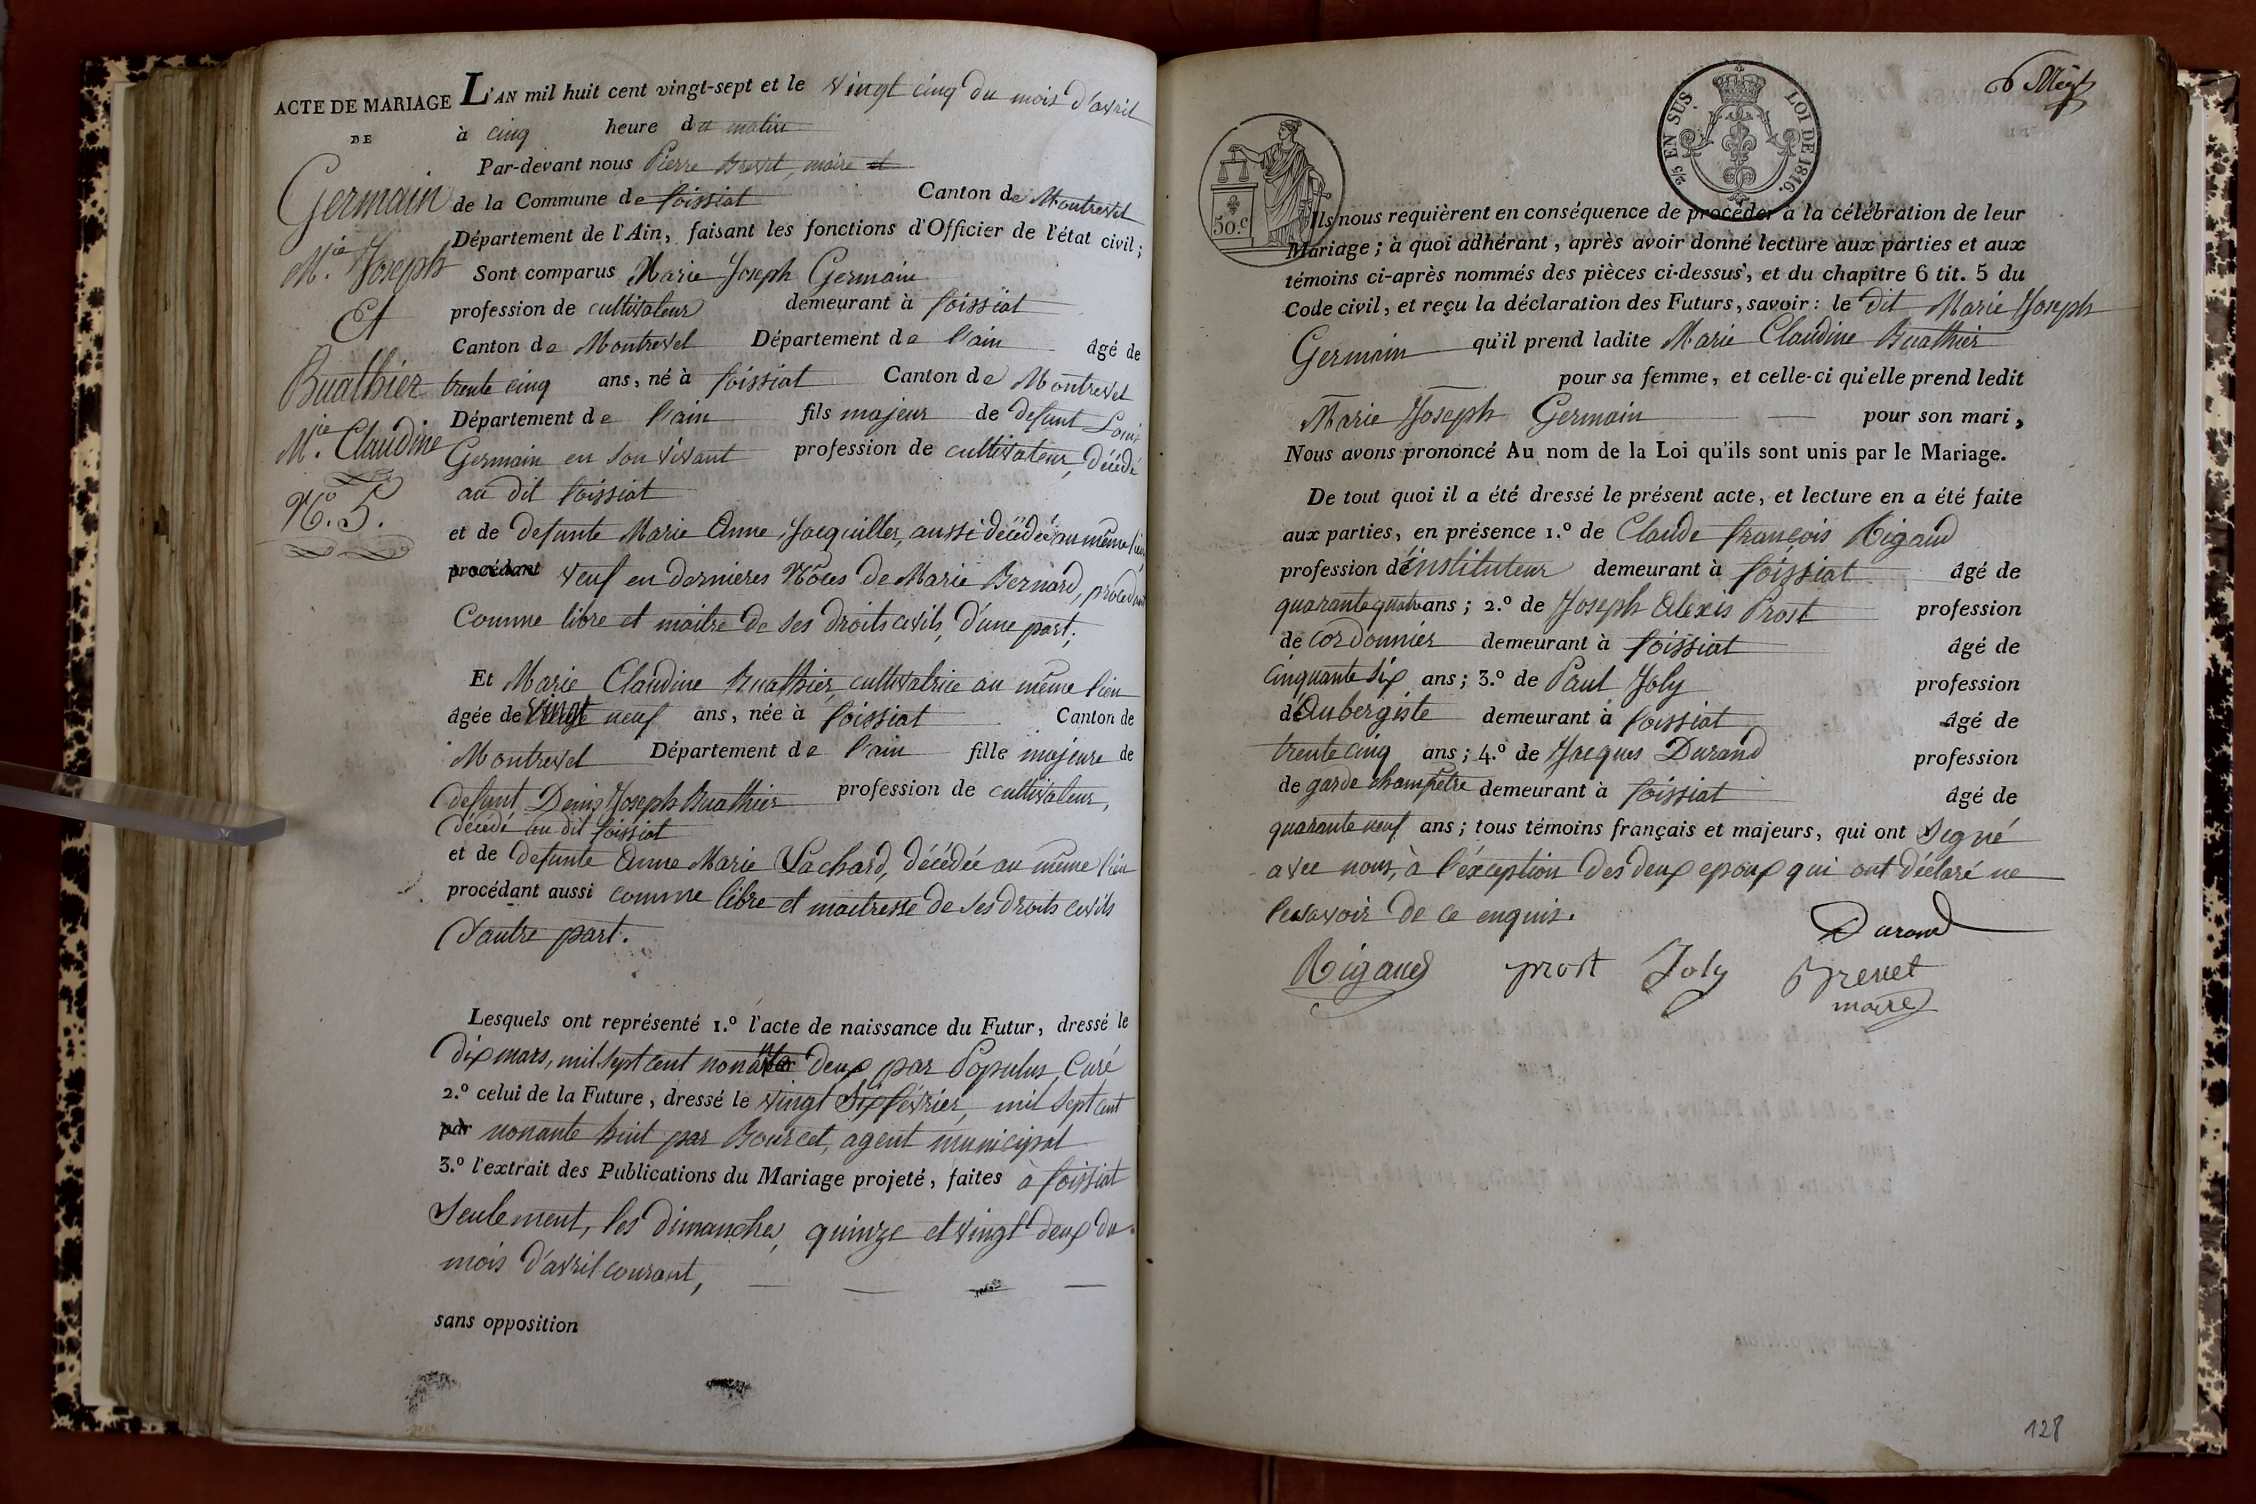 ACTE DE MARIAGE
DE
Germain
M.ie Joseph
Et
Buathier
M.ie Claudine
N.o 5.
L'AN mil huit cent vingt-sept et le vingt cinq du mois d'avril
à cinq heure du matin
Par-devant nous Pierre Brevet, maire
de la Commune de foissiat Canton de Montrevel
Département de l'Ain, faisant les fonctions d'Officier de l'état civil;
Sont comparus Marie Joseph Germain
profession de cultivateur demeurant à foissiat
Canton de Montrevel Département de l'ain âgé de
trente cinq ans, né à foissiat Canton de Montrevel
Département de l'ain fils majeur de defunt Louis
Germain en son vivant profession de cultivateur, décédé
au dit foissiat
et de defunte Marie Anne Jacquiller, aussi décédée au même lieu
procédant veuf en dernieres Nôces de Marie Bernard, procédant
Comme libre et maitre de ses droits civils, d'une part;
Et Marie Claudine Buathier, cultivatrice au même lieu
âgée de vingt neuf ans, née à foissiat Canton de
Montrevel Département de l'ain fille majeure de
defunt Denis Joseph Buathier profession de cultivateur,
décédé au dit foissiat
et de defunte Anne Marie Pachard, décédée au même lieu
procédant aussi comme libre et maitresse de ses droits civils
d'autre part.
Lesquels ont représenté 1.º l'acte de naissance du Futur, dressé le
dix mars, mil sept cent nonante deux par Populus, Curé
2.º celui de la Future, dressé le vingt six février, mil sept cent
par nonante huit par Bourcet, agent municipal
3.º l'extrait des Publications du Mariage projeté, faites à foissiat
Seulement, les dimanches, quinze et vingt deux du
mois d'avril courant,
sans opposition
50.c
25 EN SUS. LOI DE 1816.
Ils nous requièrent en conséquence de procéder à la célébration de leur
Mariage; à quoi adhérant, après avoir donné lecture aux parties et aux
témoins ci-après nommés des pièces ci-dessus, et du chapitre 6 tit. 5 du
Code civil, et reçu la déclaration des Futurs, savoir: le dit Marie Joseph
Germain qu'il prend ladite Marie Claudine Buathier
pour sa femme, et celle-ci qu'elle prend ledit
Marie Joseph Germain pour son mari,
Nous avons prononcé Au nom de la Loi qu'ils sont unis par le Mariage.
De tout quoi il a été dressé le présent acte, et lecture en a été faite
aux parties, en présence 1.º de Claude françois Rigaud
profession d'instituteur demeurant à foissiat âgé de
quarante quatre ans; 2.º de Joseph Alexis Prost profession
de cordonnier demeurant à foissiat âgé de
cinquante six ans; 3.º de Paul Joly profession
d'Aubergiste demeurant à foissiat âgé de
trente cinq ans; 4.º de Jacques Durand profession
de garde champêtre demeurant à foissiat âgé de
quarante neuf ans; tous témoins français et majeurs, qui ont signé
avec nous, à l'éxception des deux epoux qui ont déclaré ne
le savoir de ce enquis.
Durand
Rigaud prost Joly Brevet
maire
128